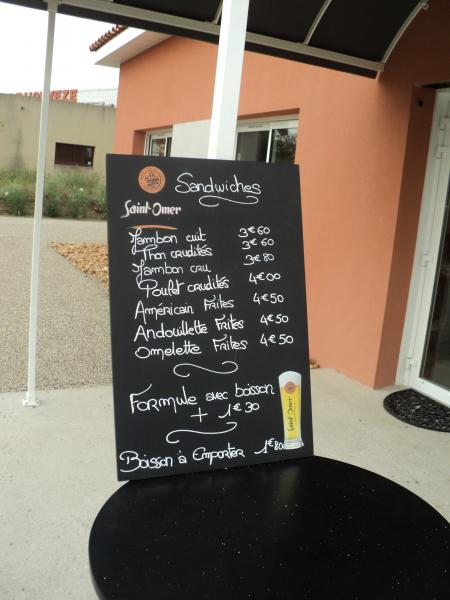 Sandwiches
Saint-Omer
Jambon cuit 3€60
Thon crudités 3€60
Jambon cru 3€80
Poulet crudités 4€00
Américain Frites 4€50
Andouillette Frites 4€50
Omelette Frites 4€50
Formule avec boisson
+ 1€30
Saint-Omer
Boisson à Emporter 1€80